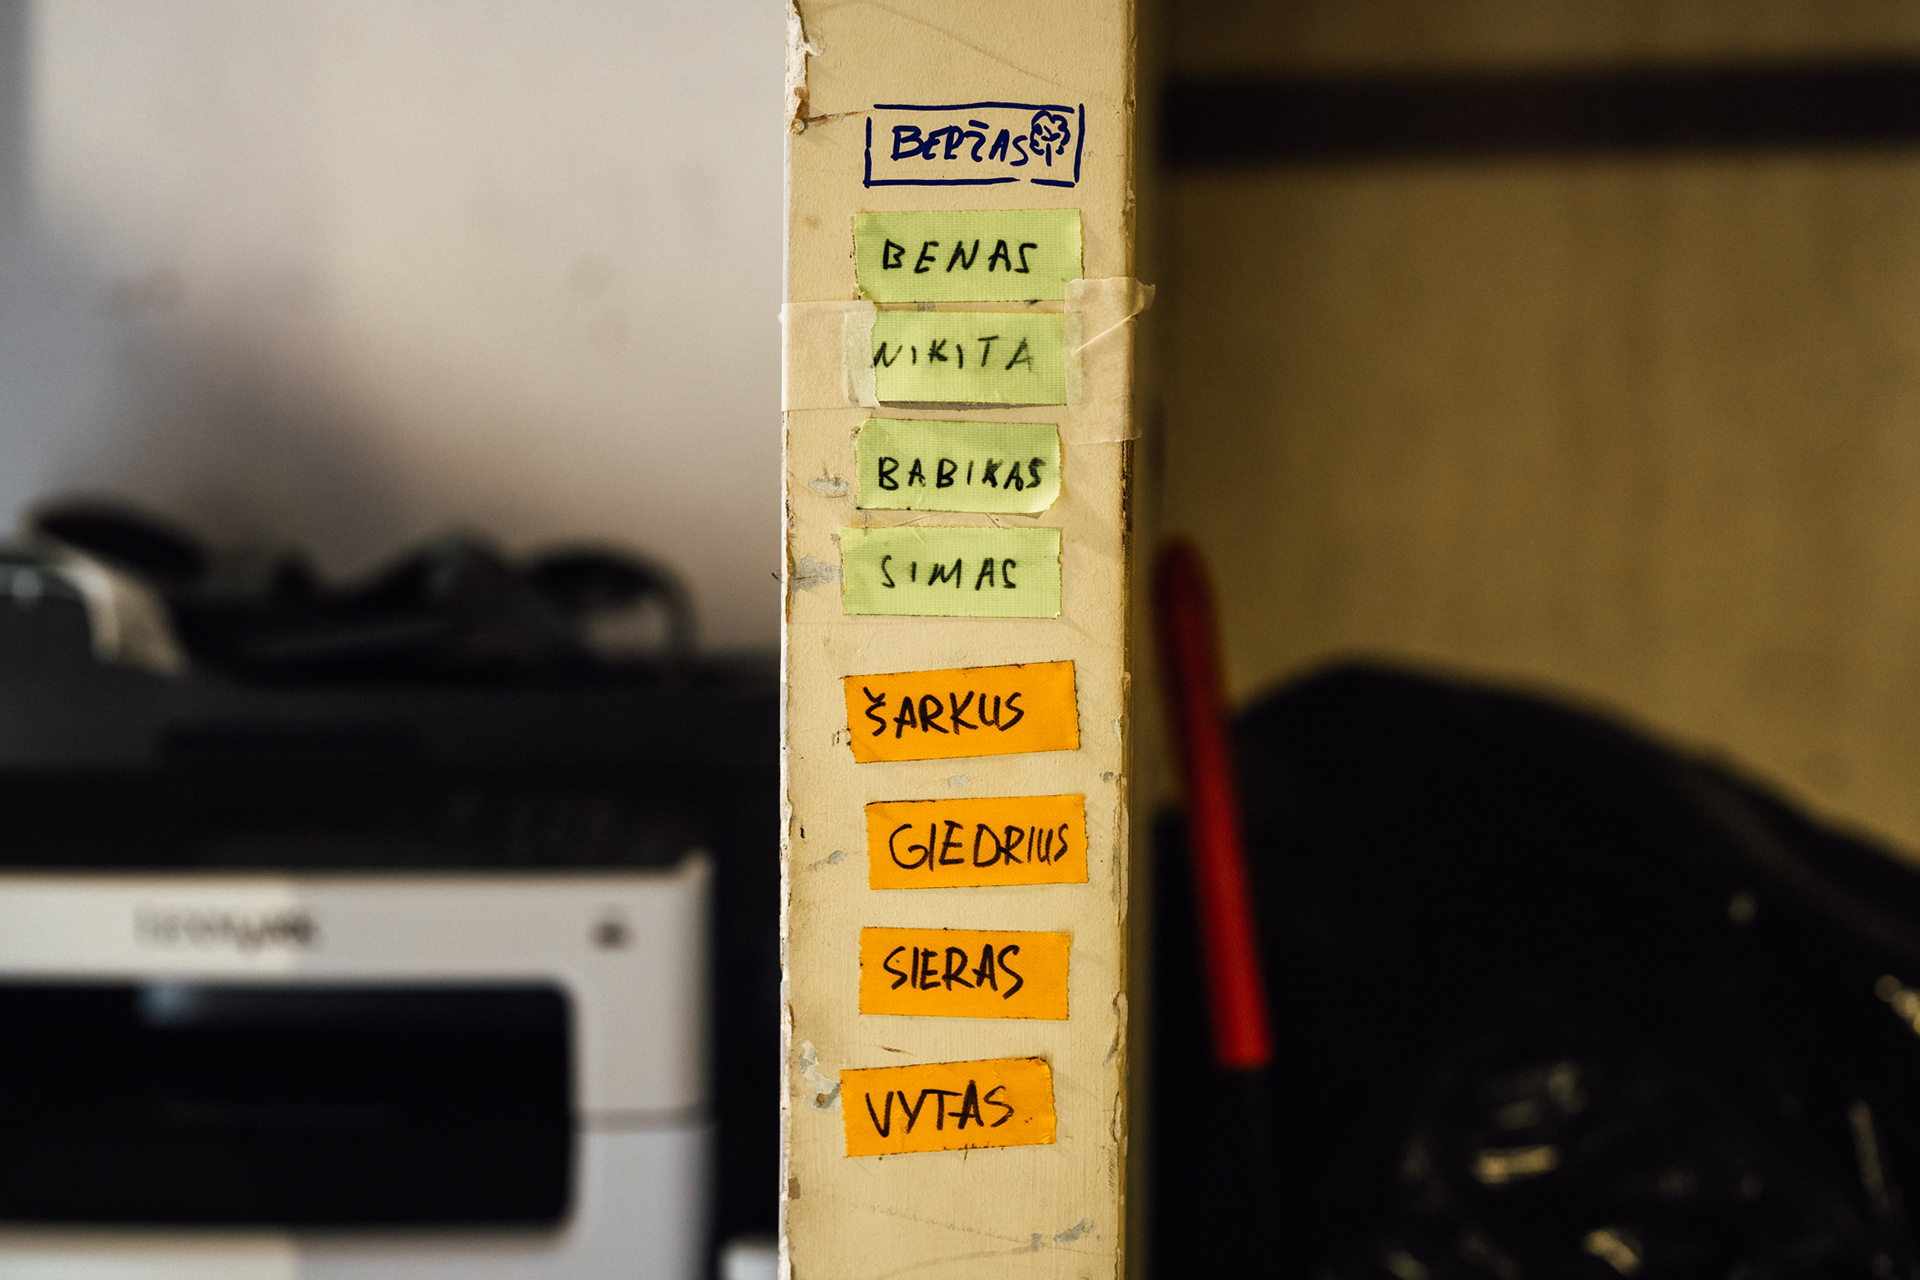 BERŽAS
BENAS
NIKITA
BABIKAS
SIMAS
ŠARKUS
GIEDRIUS
SIERAS
VYTAS